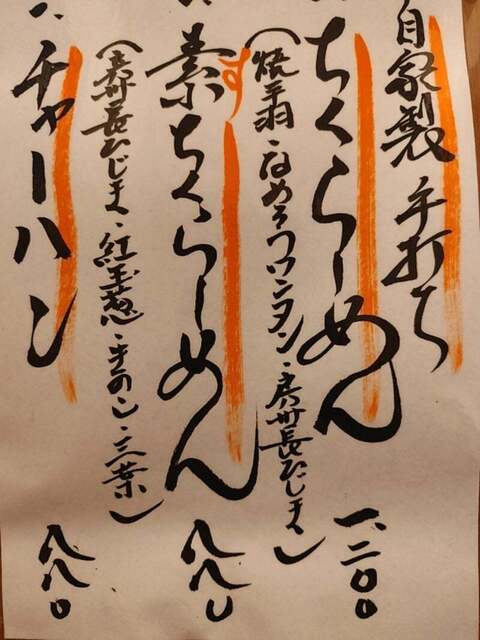 自家製 手打ち
ちくらーめん 一、二〇〇
・なめろうワンタン・房州長ひじき)
す
素ちくらーめん 八八〇
(房州長ひじき・紅玉葱・きのこ・三葉)
チャーハン 八八〇